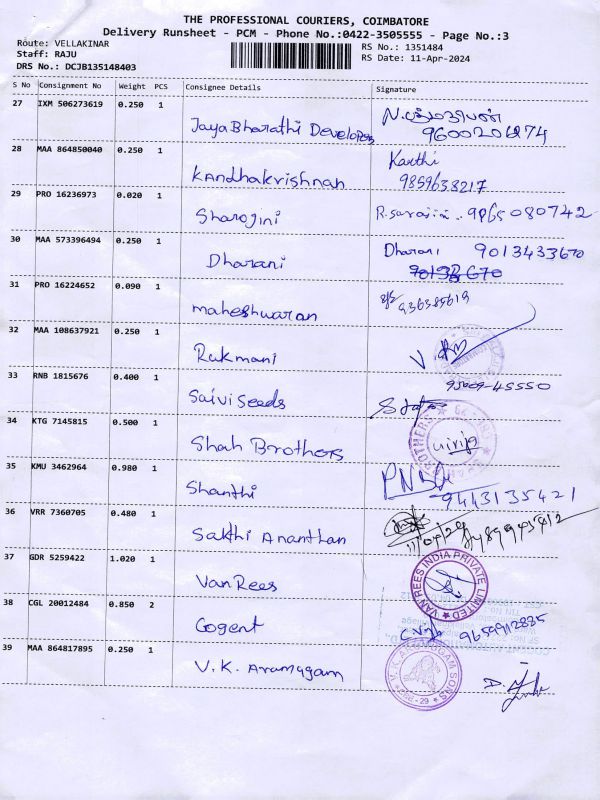 THE PROFESSIONAL COURIERS, COIMBATORE
Delivery Runsheet - PCM - Phone No.:0422-3505555 - Page No.:3
Route: VELLAKINAR
Staff: RAJU
DRS No.: DCJB135148403
RS No.: 1351484
RS Date: 11-Apr-2024
S No Consignment No Weight PCS Consignee Details Signature
27 IXM 506273619 0.250 1
Jaya Bharathi Developers
9600206274
28 MAA 864850040 0.250 1
Kandhakrishnan
Karthi
9859638217
29 PRO 16236973 0.020 1
Sharogini
R. Sarojini 9965080742
30 MAA 573396494 0.250 1
Dharani
Dharani 9013433670
31 PRO 16224652 0.090 1
maheshwaran
936385619
32 MAA 108637921 0.250 1
Rukmani
33 RNB 1815676 0.400 1
Saivi Seeds
95009-45550
34 KTG 7145815 0.500 1
Shah Brothers
35 KMU 3462964 0.980 1
Shanthi
9443135421
36 VRR 7360705 0.480 1
Sakthi Ananthan
37 GDR 5259422 1.020 1
Van Rees
VAN REES INDIA PRIVATE LIMITED
38 CGL 20012484 0.850 2
Cogent
9659912885
39 MAA 864817895 0.250 1
V. K. Aramugam